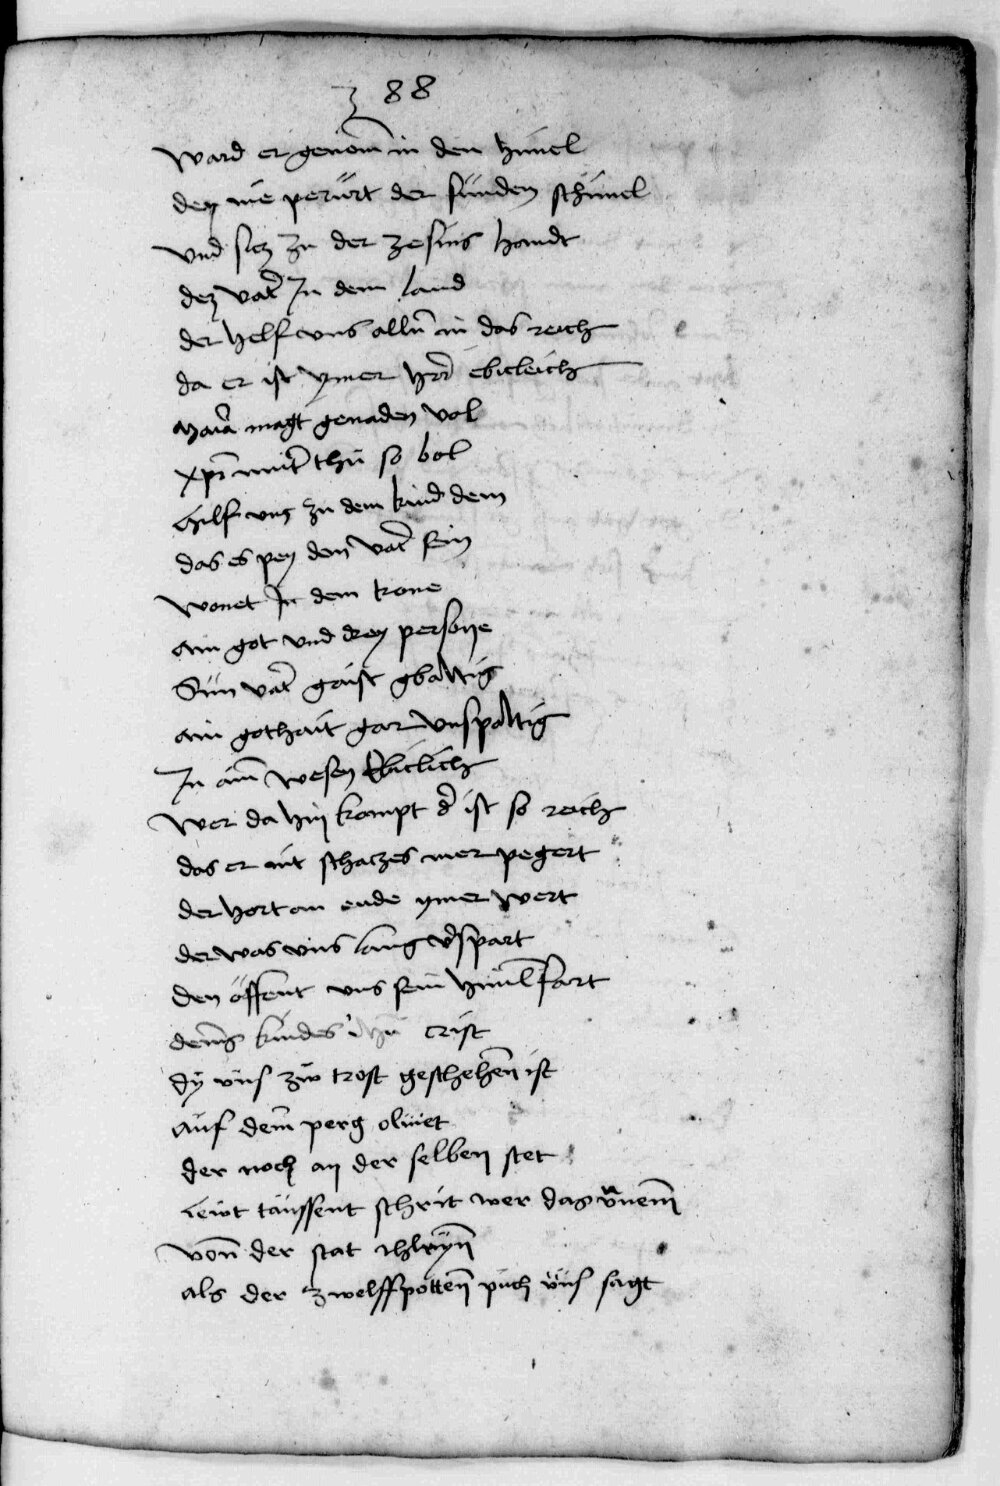 388
Ward er genom̄ in den himel
den nie perürt der sünden schimel
vnd sicz zu der zesins handt
dez vat̄ In dem land
der helf vns alln̄ in das reich
da er ist ymer her̄ ebicleich
Maria magt genaden vol
xp̄i muet̄ thu so bol
hilf vns zu dem kind dein
das es pey dem vat̄ sein
wonet In dem trone
ain got vnd drey persone
Sun vat̄ gaist gbaltig
ain gothait gar vnspaltig
In aim̄ wesen Ebiclich
wer da hin kompt d̄ ist so reich
das er nit schaczes mer pegert
der hort an ende ymer wert
der was vns lang v̄spart
den öffent vns sein himel fart
deins kindes ihū crist
dy vns zw trost geschehen̄ ist
auf dem̄ perg oliuet
der noch an der selben stet
leiot taussent schrit wer das v̄nem̄
von̄ der stat ihlrm̄
als der zwelffpotten̄ püch vns sagt